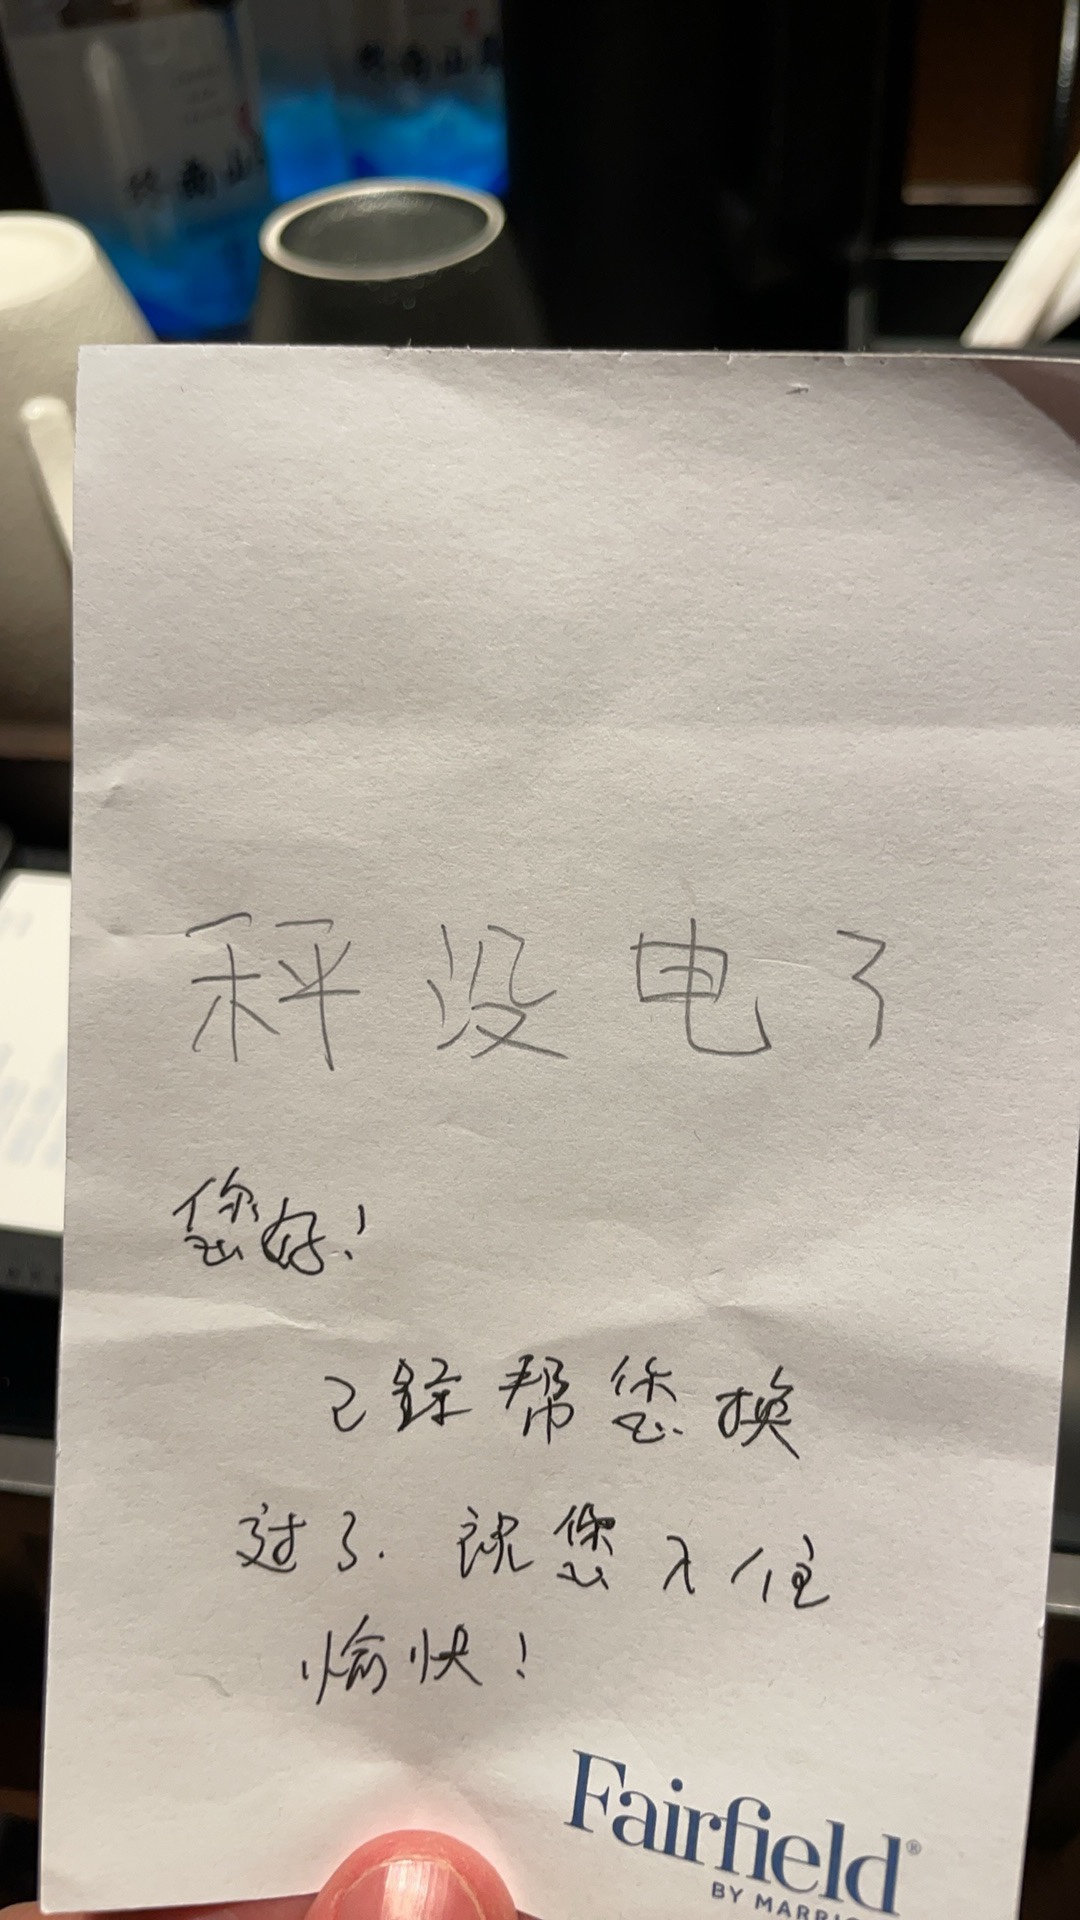 终南山
终南山
秤没电了
您好!
已经帮您换
过了.祝您入住
愉快!
Fairfield®
BY MARRI